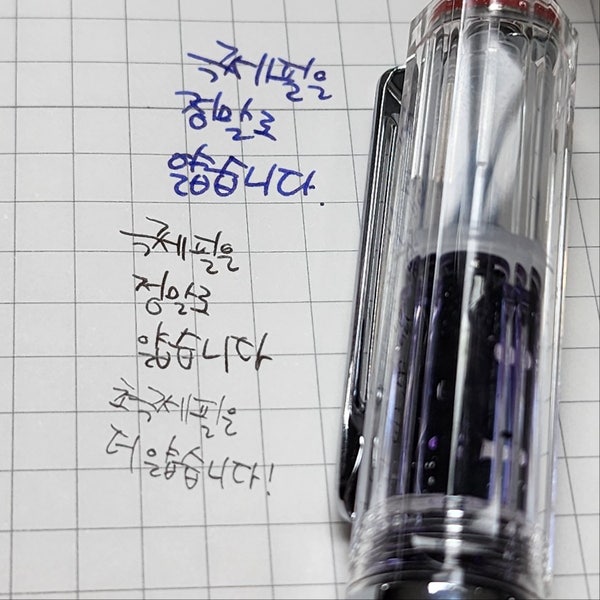 극세필은
정말로
얇습니다.
극세필은
정말로
얇습니다
초극세필은
더 얇습니다!